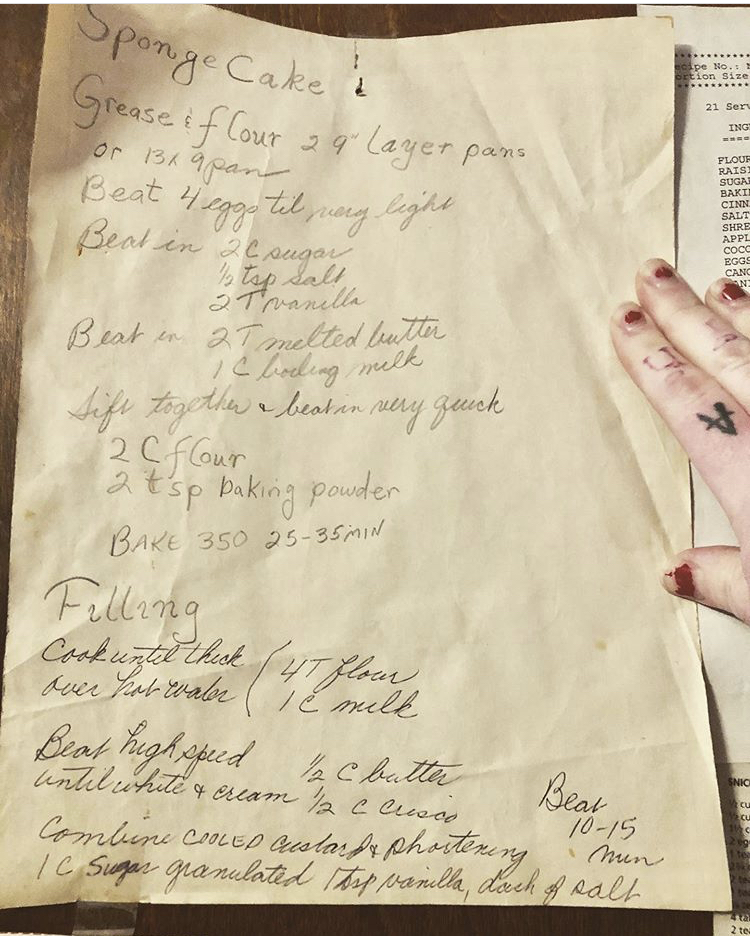 Sponge Cake
Grease & flour 2 9" layer pans
or 13 x 9 pan
Beat 4 eggs til very light
Beat in 2 C sugar
½ tsp salt
2 T vanilla
Beat in 2 T melted butter
1 C boiling milk
Sift together & beat in very quick
2 C flour
2 tsp baking powder
BAKE 350 25-35 MIN
Filling
Cook until thick ( 4 T flour
over hot water 1 C milk
Beat high speed ½ C butter
until white & cream ½ C crisco
Beat
10-15
min
Combine COOLED custard & shortening
1 C Sugar granulated 1 tsp vanilla, dash of salt
ecipe No.:
ortion Size
21 Serv
ING
====
FLOUR
RAISI
SUGA
BAKIN
CINN
SALT
SHRE
APPL
COCO
EGGS
4